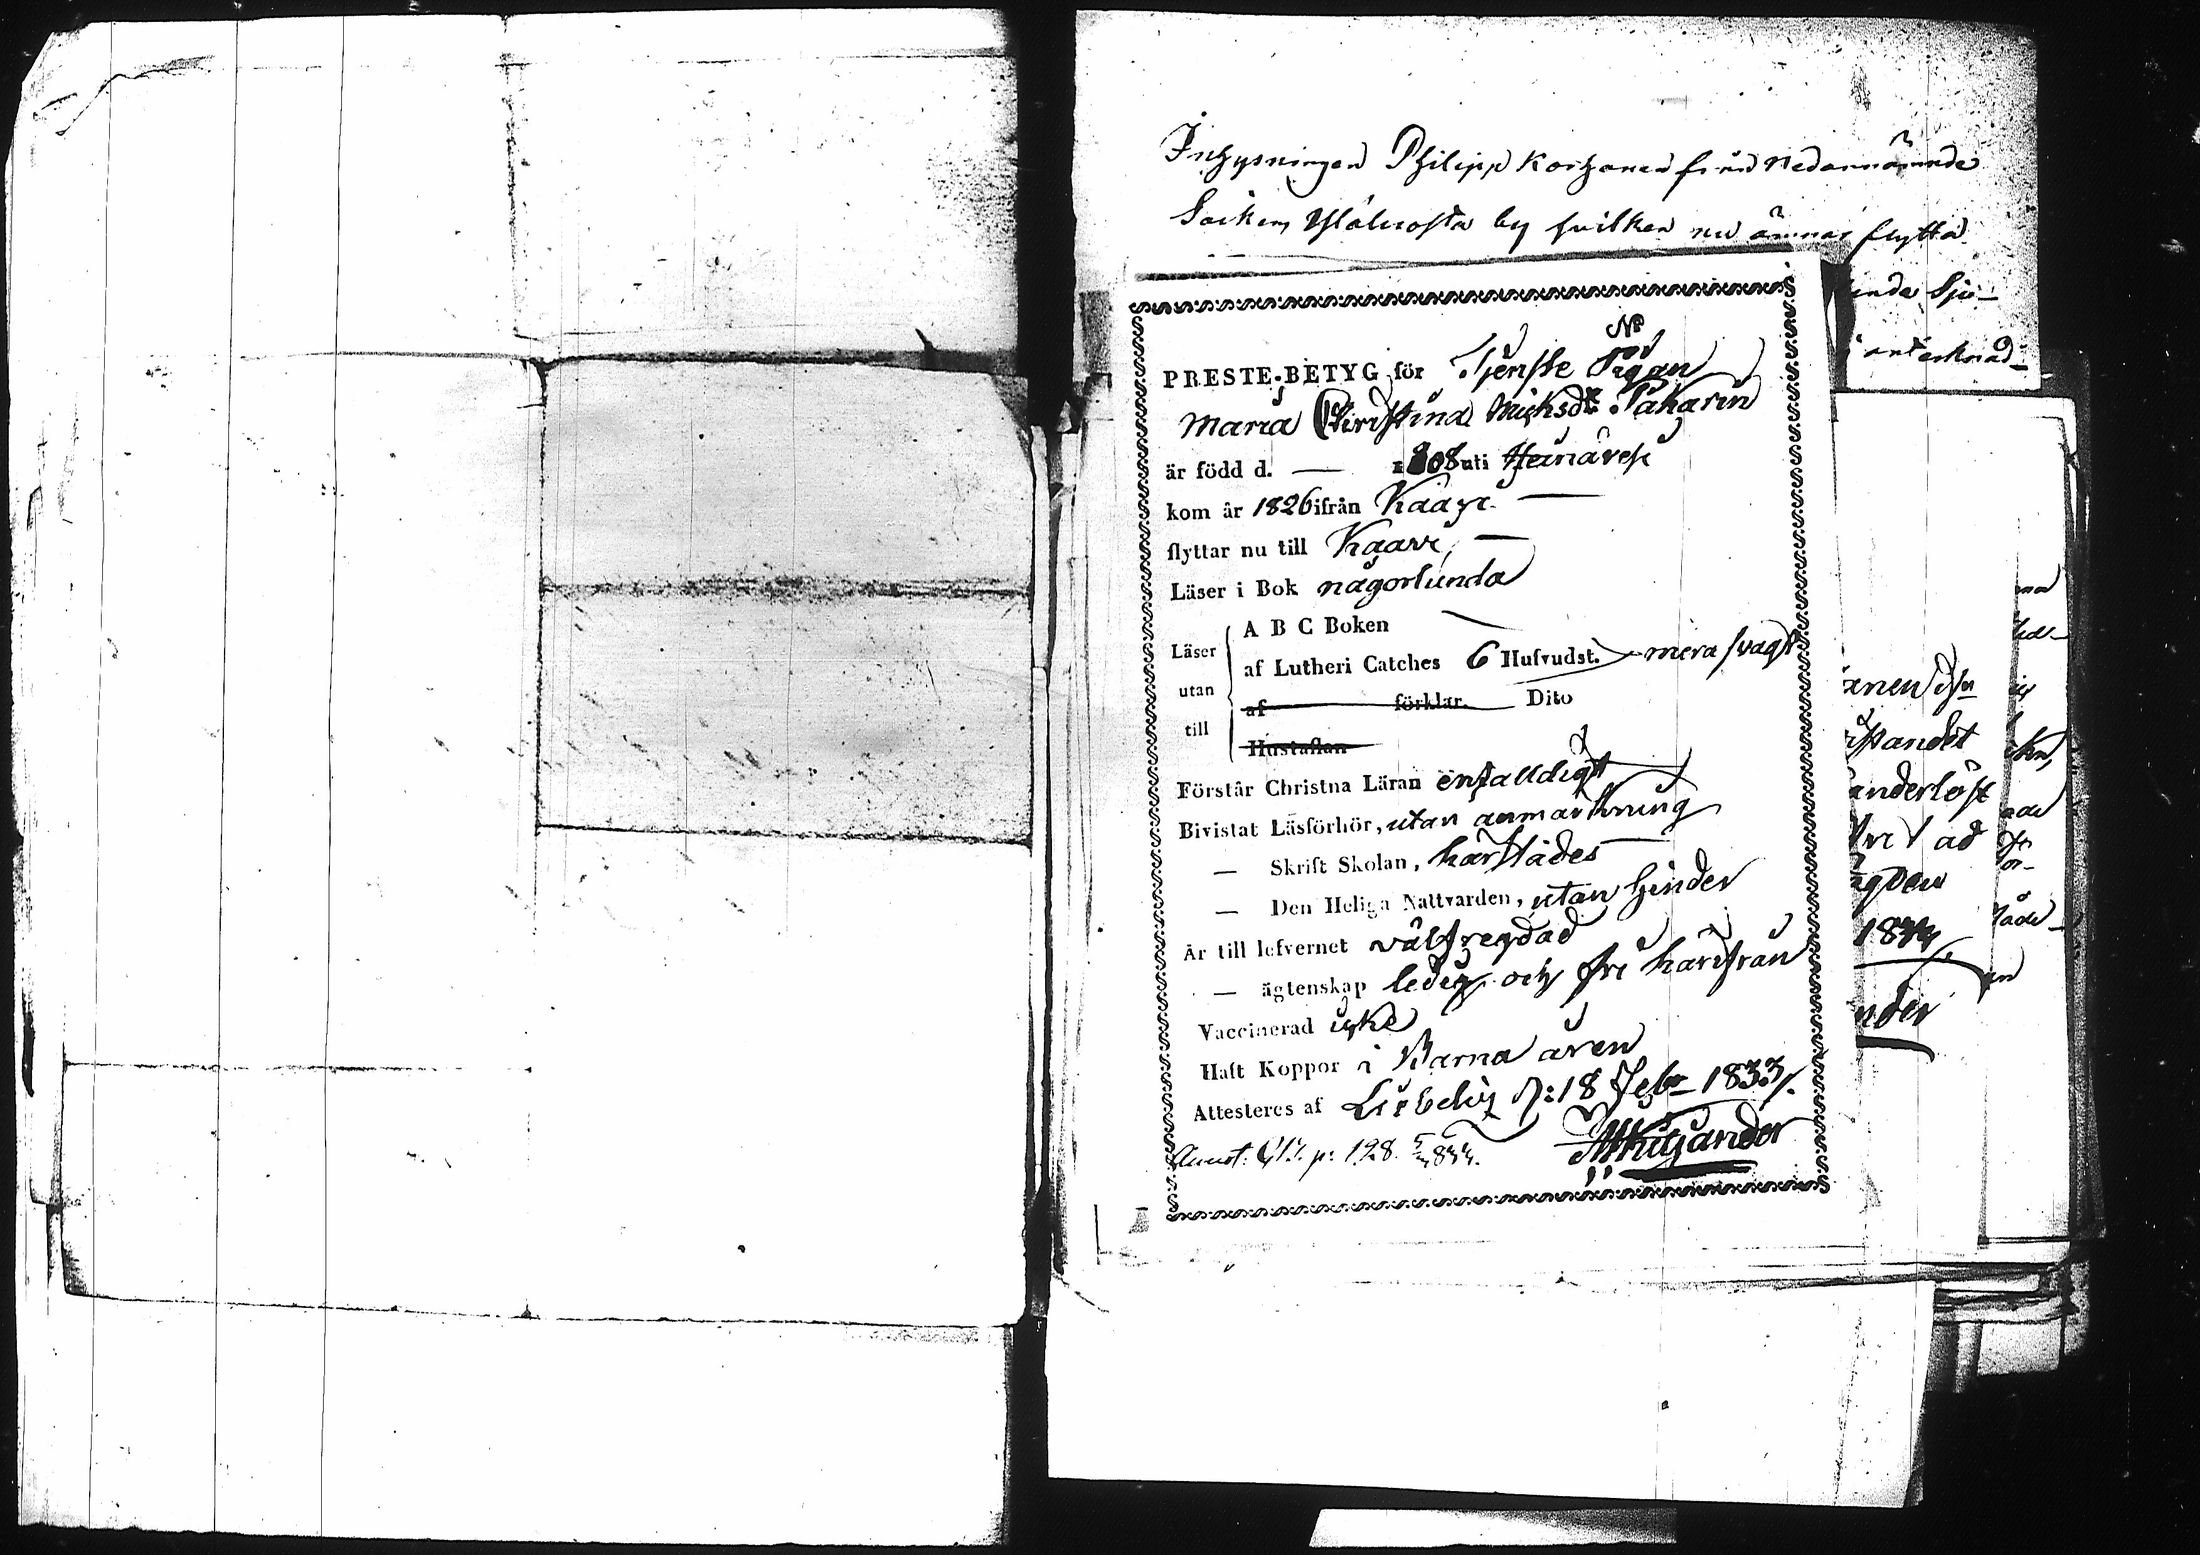 Inhysningen Philipp Korhonen från nedannämnde
Socken, by hvilken nu ämnar flytta
ande Sju-
anteknad
No
PRESTE-BETYG för Tjenste Pigan
Maria Christina Michsdr Pakarin
är född d. — 1808 uti Heinävesi
kom år 1826 ifrån Kaavi —
flyttar nu till Kaavi, —
Läser i Bok någorlunda
Läser utan till
A B C Boken
af Lutheri Catches 6 Hufvudst. mera svagt
af förklar. Dito
Hustaflan
Förstår Christna Läran enfalldigt
Bivistat Läsförhör, utan anmärkning
— Skrift Skolan, härstädes
— Den Heliga Nattvarden, utan hinder
Är till lefvernet välfregdad
— ägtenskap ledig och fri härifrån
Vaccinerad icke
Haft Koppor i Barna åren
Attesteres af Libelitz d: 18 Febr 1833.
p: 128.
anderlöst
ad
nder